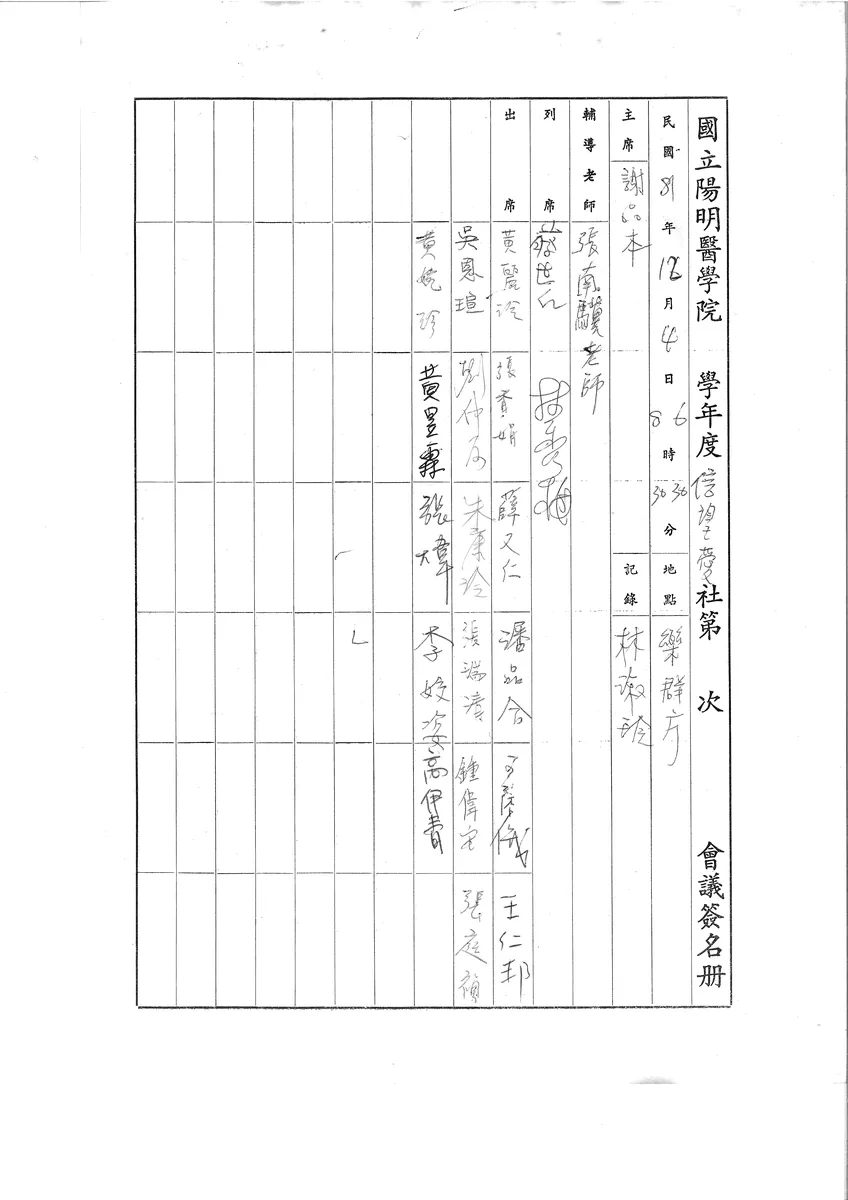 國立陽明醫學院 學年度信望愛社第 次 會議簽名册
民國81年12月4日 8 6時 30 30分 地點 樂群廳
主席 謝品本 記錄 林淑玲
輔導老師 張南驥老師
列席 林秀梅
出席 黃麗玲 張貴娟 薛又仁 潘品合 王仁邦
吳恩瑄 劉仲 朱康玲 張瑞濱 鍾偉 張庭禎
黃婉珍 黃昱霖 張瑋 李姣姿 高伊青